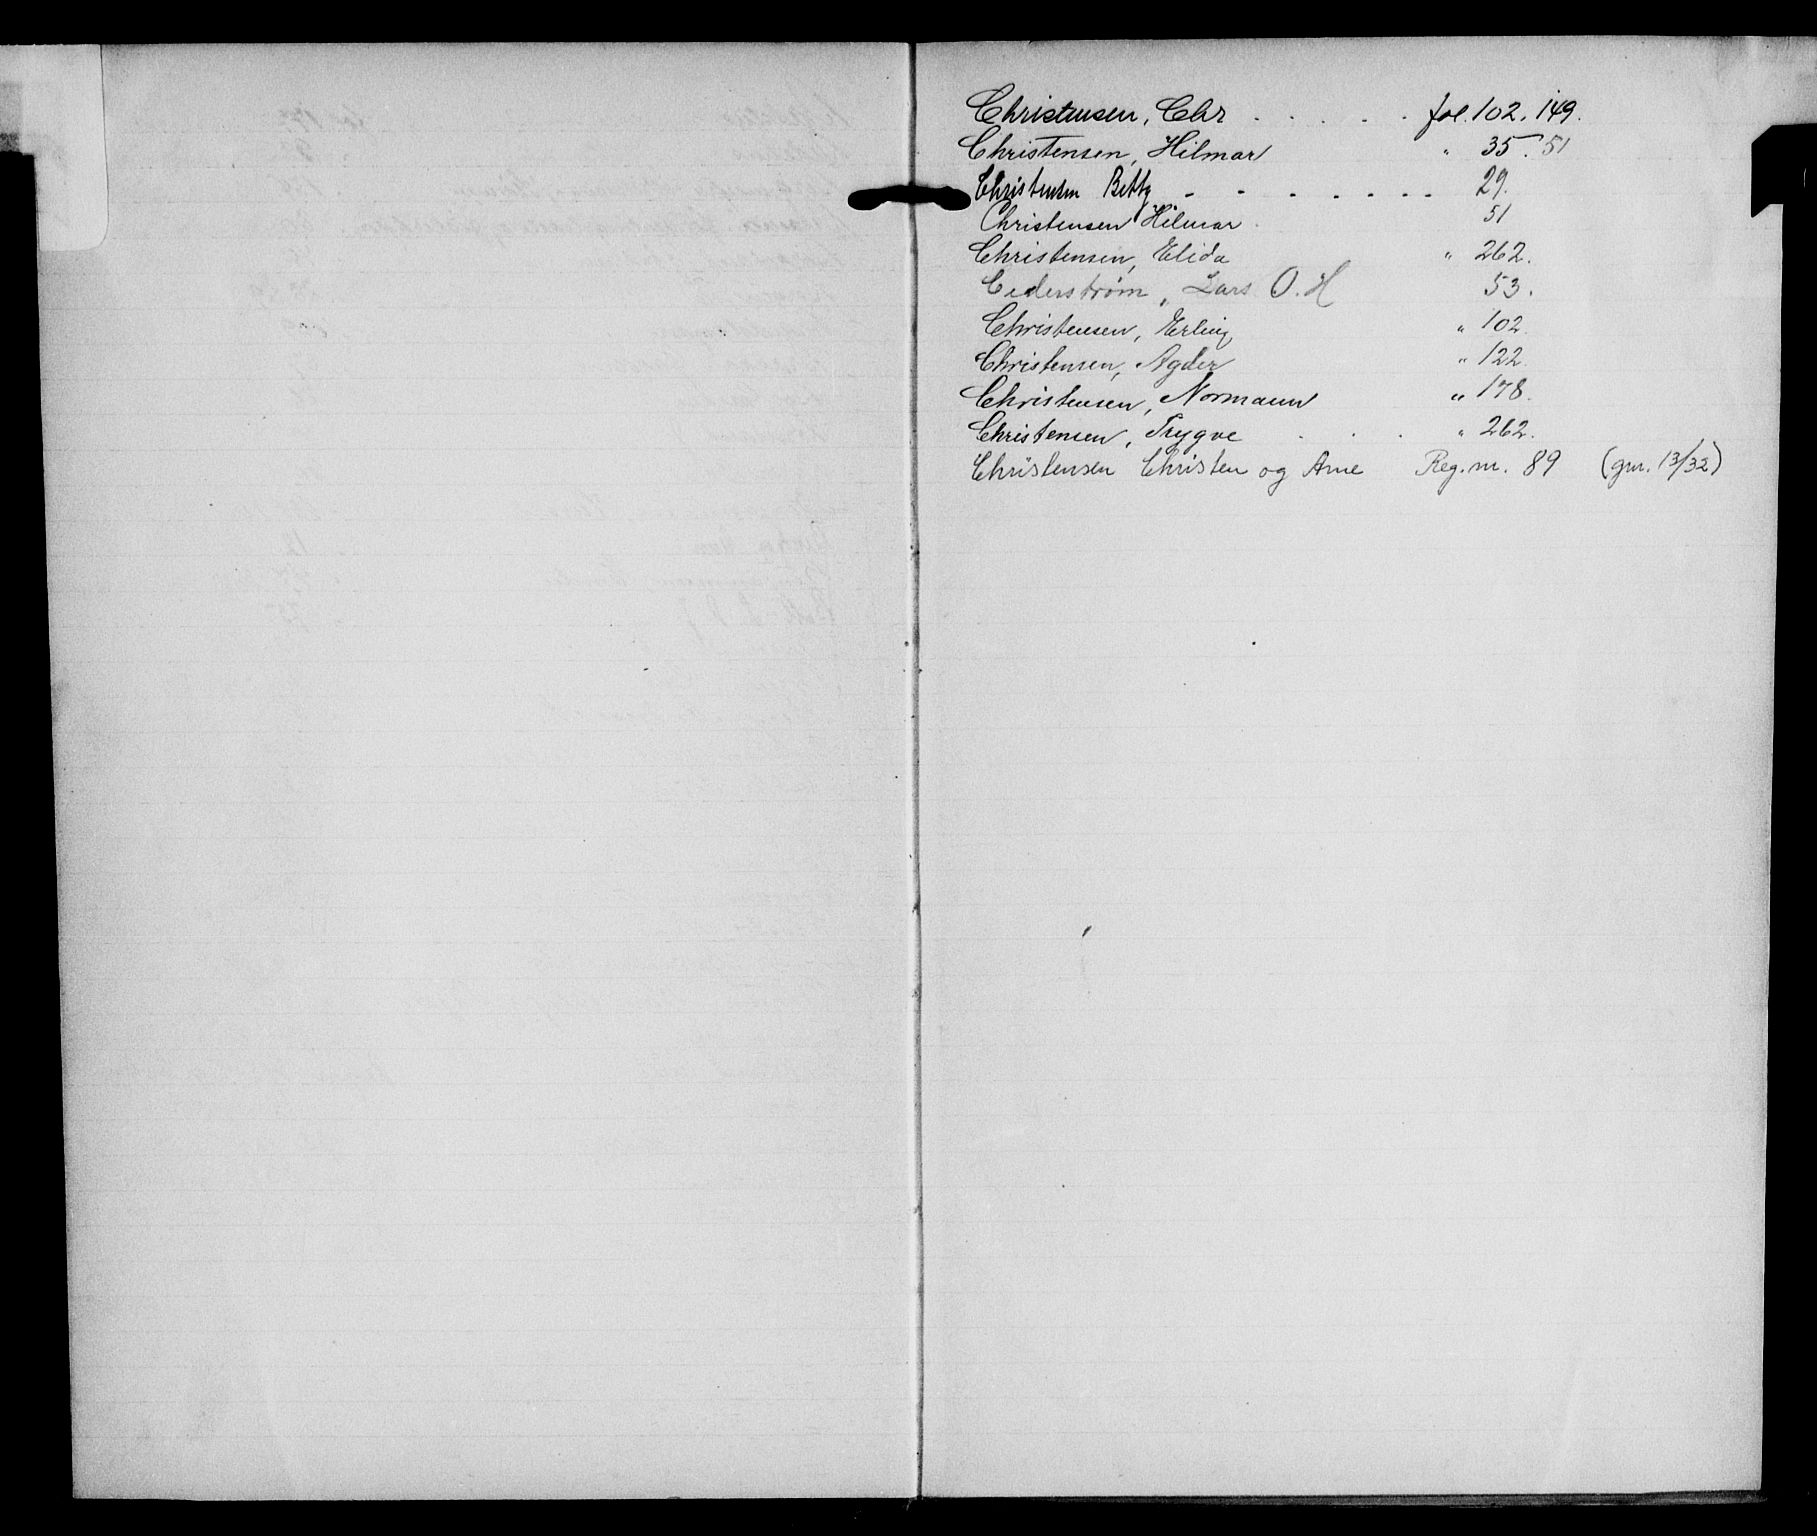 Christensen, Chr . . . . . fol. 102. 149.
Christensen, Hilmar " 35. 51
Christensen Betty - - - . . . . . 29.
Christensen Hilmar . 51
Christensen, Elida " 262.
Cederstrøm, Lars O. H 53.
Christensen, Erling " 102.
Christensen, Agder " 122.
Christensen, Normann " 178.
Christensen, Trygve . . . " 262.
Christensen Christen og Arne Reg. nr. 89 (gnr. 13/32)